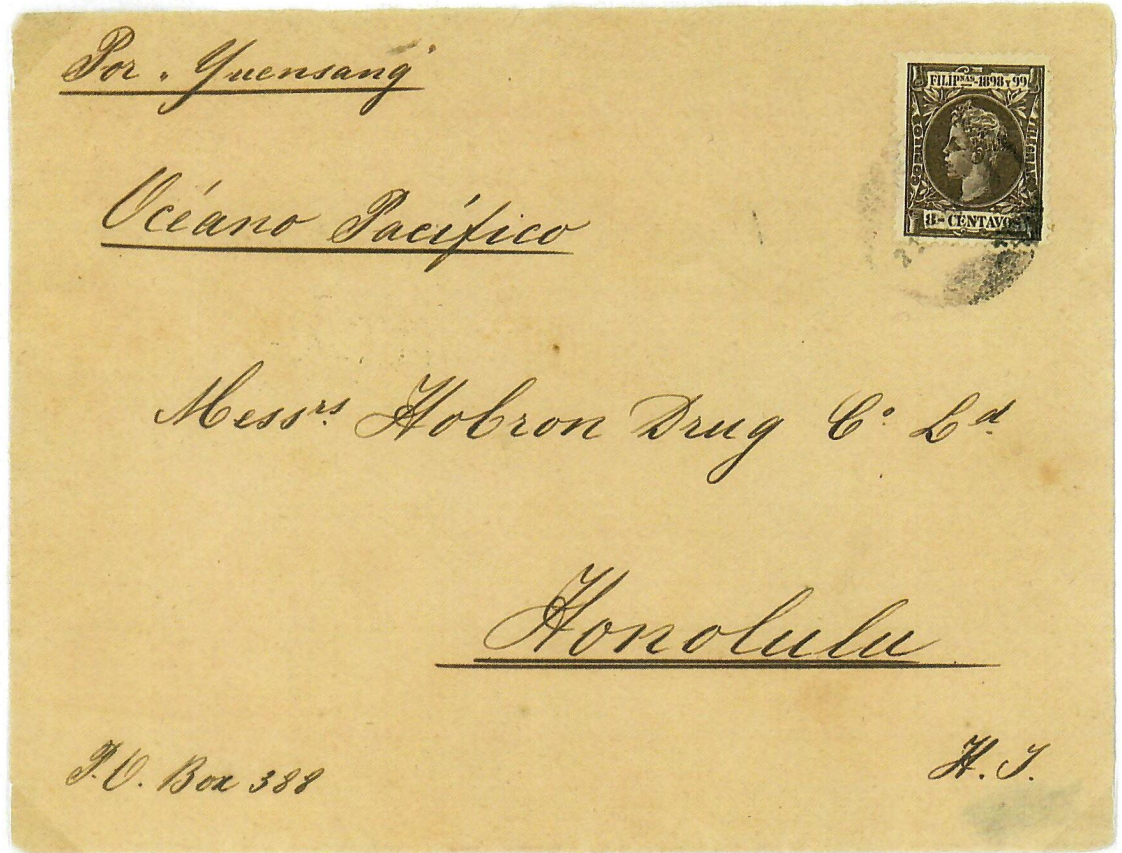 Por "Yuensang"
FILIPNAS-1898 Y 99
8 CENTAVOS
Océano Pacífico
Messrs Hobron Drug Co Ld
Honolulu
P.O. Box 388
H.I.